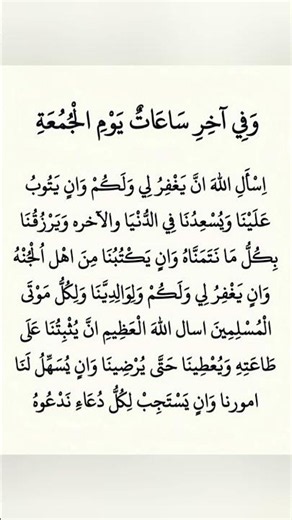 وَفِي آخِرِ سَاعَاتٌ يَوْمِ الْجُمُعَةِ
اِسْأَلِ اللهَ انَّ يَغْفِرُ لِي وَلَكُمْ وَانٍ يَتُوبُ
عَلَيْنَا وَيُسْعِدُنَا فِي الدُّنْيَا والآخره وَيَرْزُقُنَا
بِكُلُّ مَا نَتَمَنَّاهُ وَانٍ يَكْتُبُنَا مِنَ اهْل اُلْجُنْهُ
وَانٍ يَغْفِرُ لِي وَلَكُمْ وَلِوَالِدِيَّنَا وَلِكُلُّ مَوْتَى
الْمُسْلِمِينَ اسال اللهَ الْعَظِيمِ انَّ يُثْبِتُنَا عَلَى
طَاعَتِهِ وَيُعْطِينَا حَتَّى يُرْضِينَا وَانٍ يُسَهِّلُ لَنَا
امورنا وَانٍ يَسْتَجِبْ لِكُلُّ دُعَاءِ نَدْعُوهُ